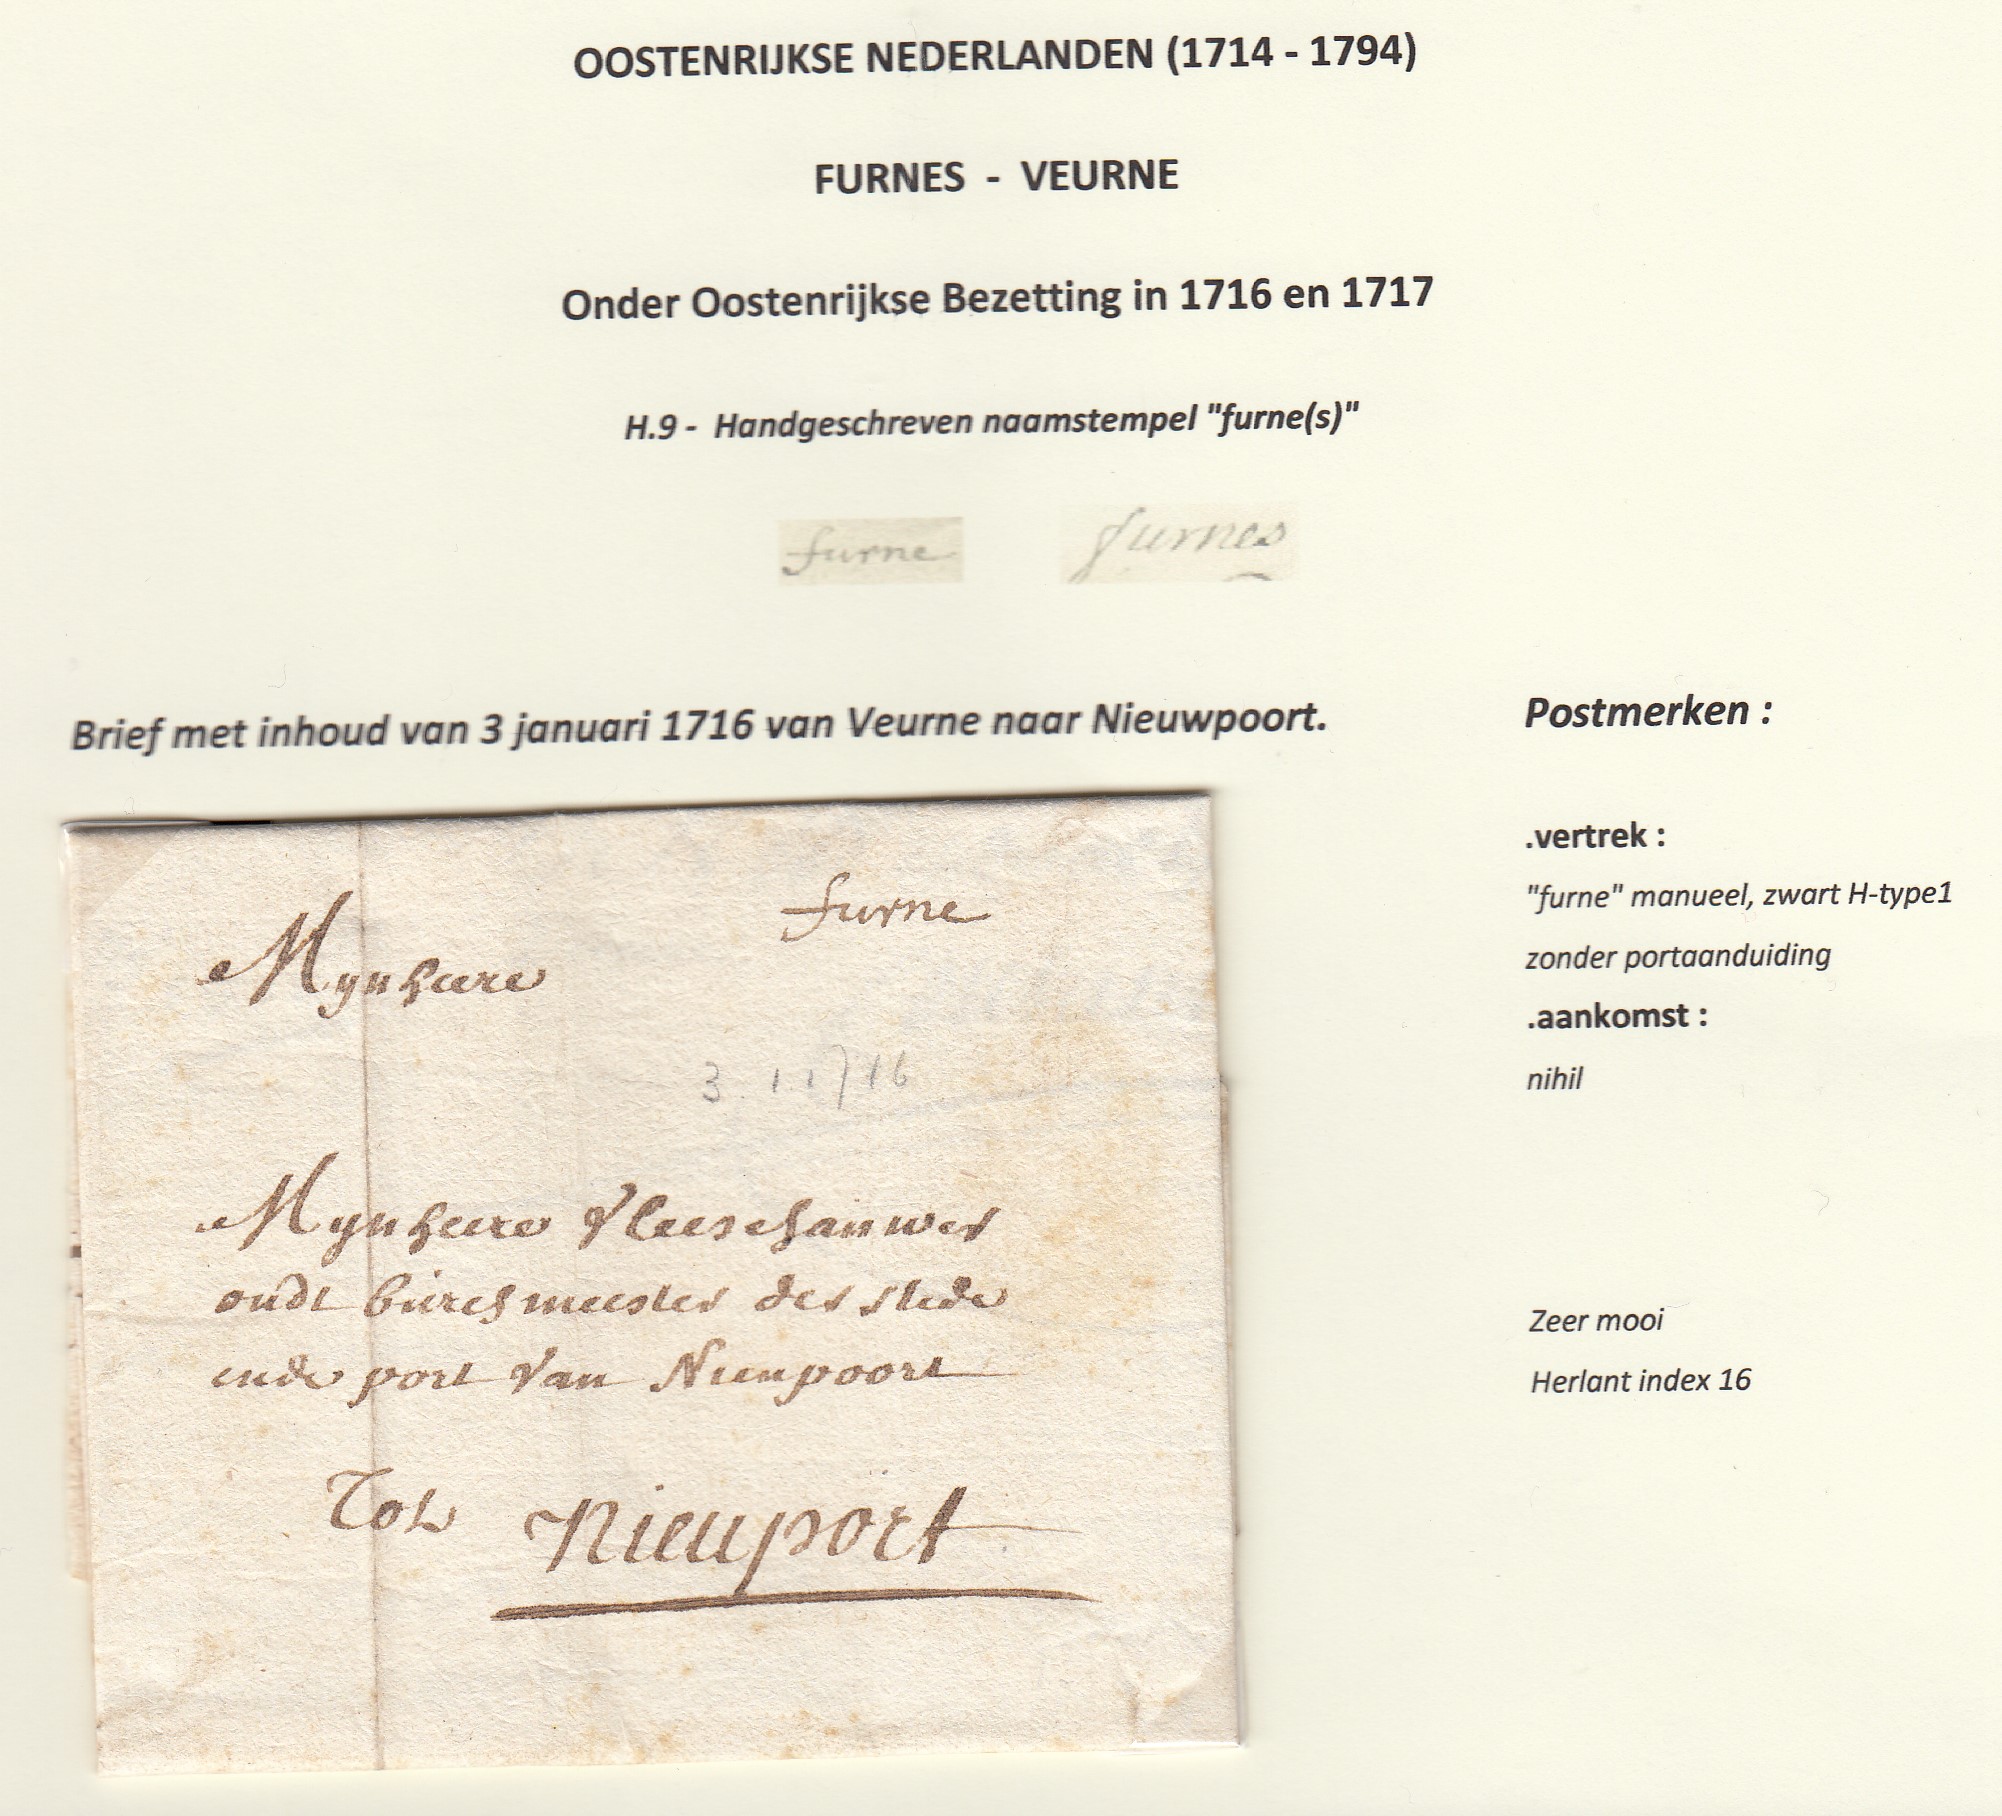 OOSTENRIJKSE NEDERLANDEN (1714 - 1794)
FURNES - VEURNE
Onder Oostenrijkse Bezetting in 1716 en 1717
H.9 - Handgeschreven naamstempel "furne(s)"
furne furnes
Brief met inhoud van 3 januari 1716 van Veurne naar Nieuwpoort.
furne
Mynheere
3.1.1716
Mynheere Vleeschauwer
oudt burchmeester der stede
ende port van Nieupoort
Tot Nieuport
Postmerken :
.vertrek :
"furne" manueel, zwart H-type1
zonder portaanduiding
.aankomst :
nihil
Zeer mooi
Herlant index 16